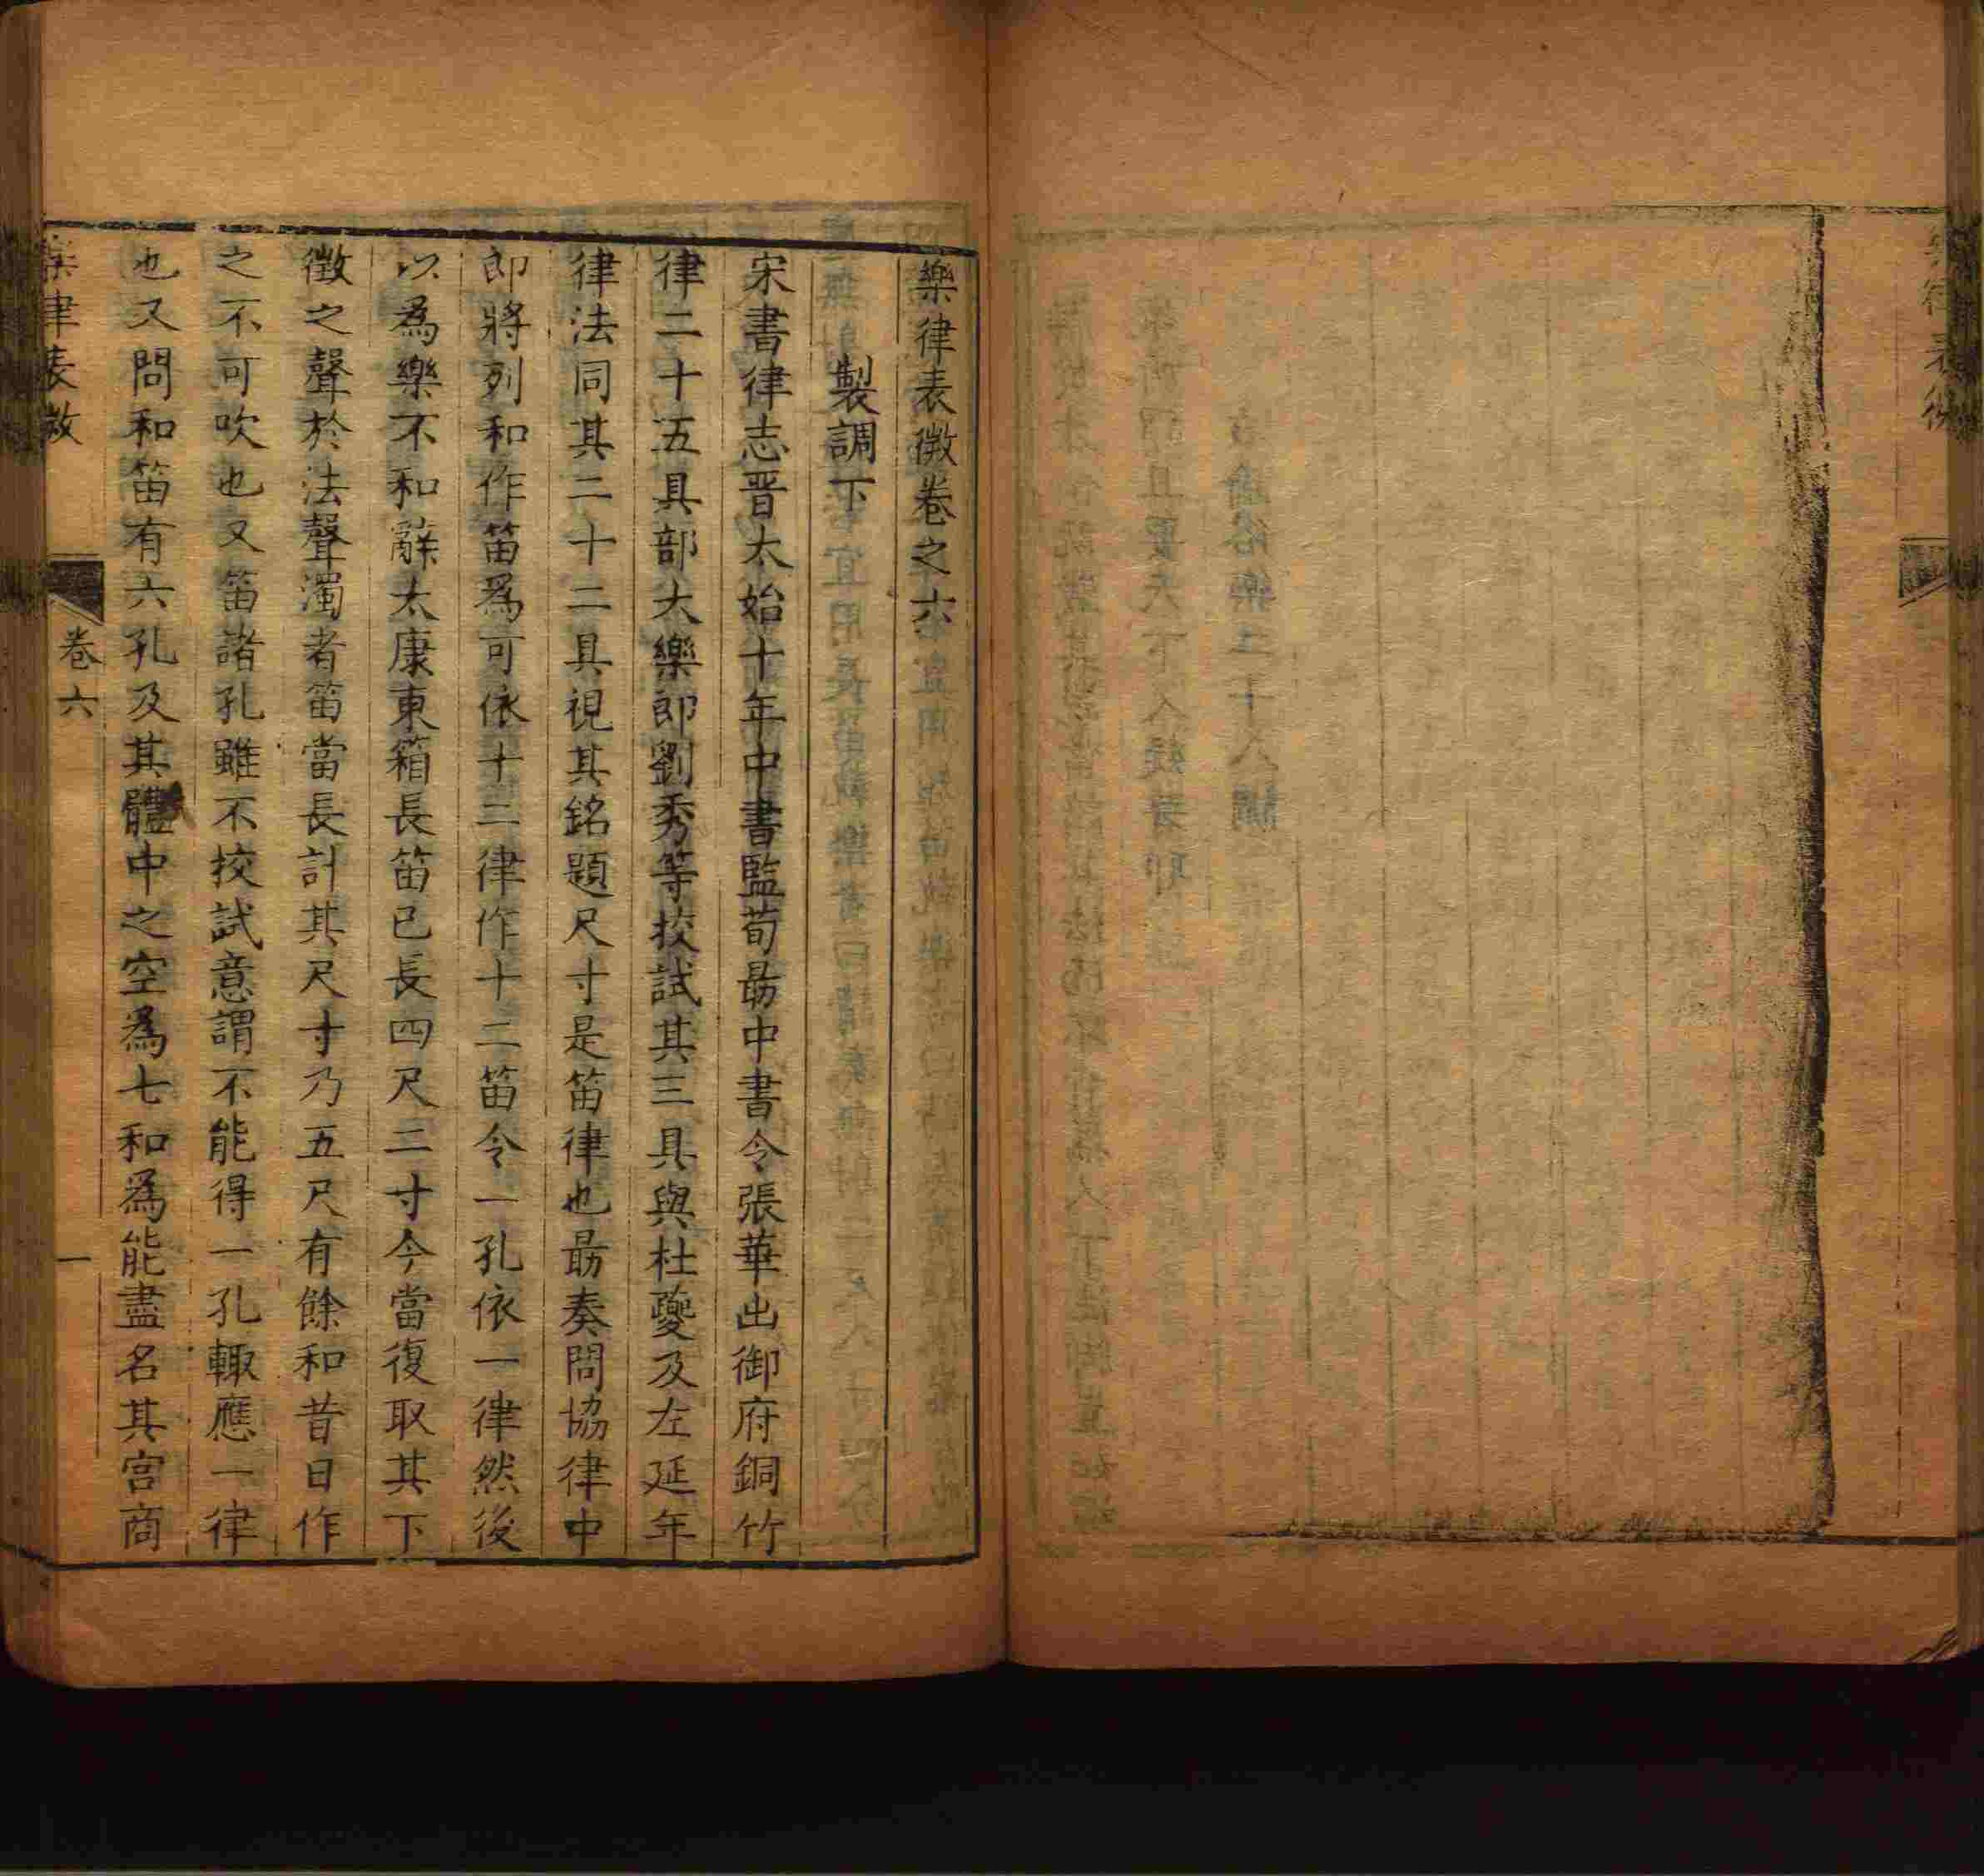 樂律表微卷之六
製調下
宋書律志晉太始十年中書監荀勗中書令張華出御府銅竹
律二十五具部太樂郎劉秀等挍試其三具與杜夔及左延年
律法同其二十二具視其銘題尺寸是笛律也勗奏問協律中
郎將列和作笛爲可依十二律作十二笛令一孔依一律然後
以爲樂不和辭太康東箱長笛已長四尺二寸今當復取其下
徵之聲於法聲濁者笛當長計其尺寸乃五尺有餘和昔日作
之不可吹也又笛諸孔雖不挍試意謂不能得一孔輙應一律
也又問和笛有六孔及其體中之空爲七和爲能盡名其宫商
樂律表微
卷六
一